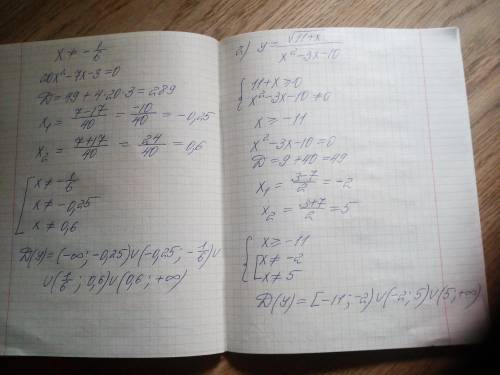 x ≠ -1/6
20x²-7x-3=0
D=49+4·20·3=289
x₁ = (7-17)/40 = -10/40 = -0,25
x₂ = (7+17)/40 = 24/40 = 0,6
[ x ≠ -1/6
x ≠ -0,25
x ≠ 0,6
D(y)=(-∞; -0,25)∪(-0,25; -1/6)∪
∪(1/6; 0,6)∪(0,6; +∞)
y = √(11+x) / (x²-3x-10)
{ 11+x ≥ 0
x²-3x-10 ≠ 0
x ≥ -11
x²-3x-10=0
D=9+40=49
x₁ = (3-7)/2 = -2
x₂ = (3+7)/2 = 5
{ x ≥ -11
[ x ≠ -2
x ≠ 5
D(y)=[-11; -2)∪(-2; 5)∪(5; +∞)